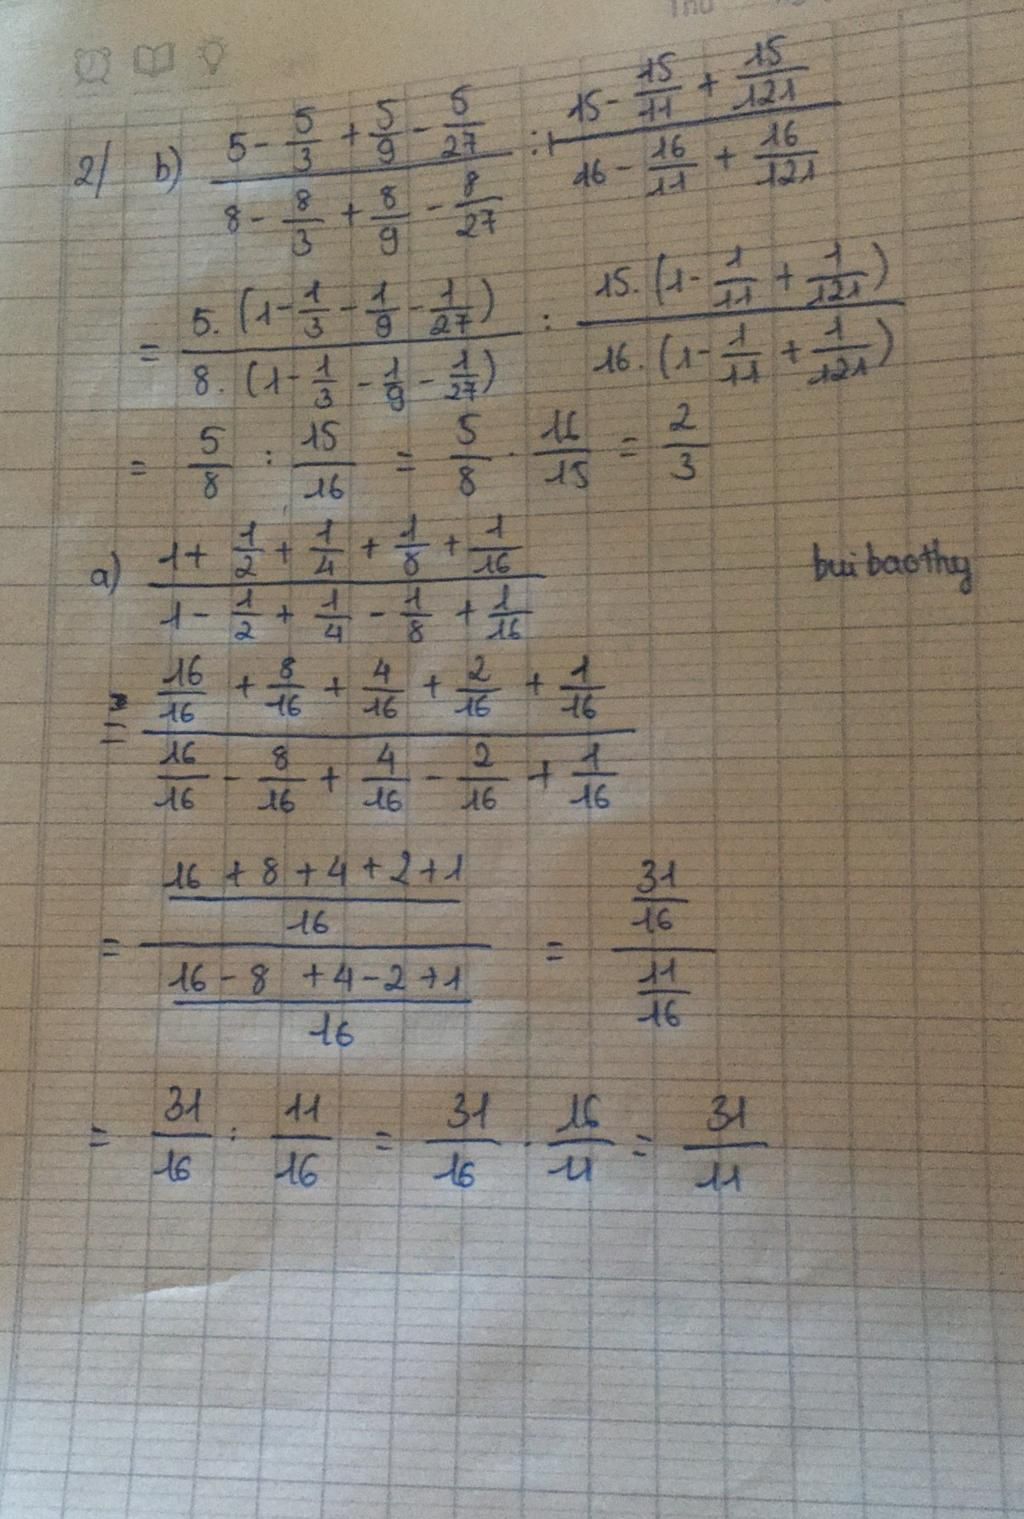 Thứ
2/ b) (5 - 5/3 + 5/9 - 5/27) / (8 - 8/3 + 8/9 - 8/27) : (15 - 15/11 + 15/121) / (16 - 16/11 + 16/121)
= 5.(1 - 1/3 - 1/9 - 1/27) / 8.(1 - 1/3 - 1/9 - 1/27) : 15.(1 - 1/11 + 1/121) / 16.(1 - 1/11 + 1/121)
= 5/8 : 15/16 = 5/8 . 16/15 = 2/3
a) (1 + 1/2 + 1/4 + 1/8 + 1/16) / (1 - 1/2 + 1/4 - 1/8 + 1/16)
bui baothy
= (16/16 + 8/16 + 4/16 + 2/16 + 1/16) / (16/16 - 8/16 + 4/16 - 2/16 + 1/16)
= ((16 + 8 + 4 + 2 + 1)/16) / ((16 - 8 + 4 - 2 + 1)/16) = (31/16) / (11/16)
= 31/16 : 11/16 = 31/16 . 16/11 = 31/11